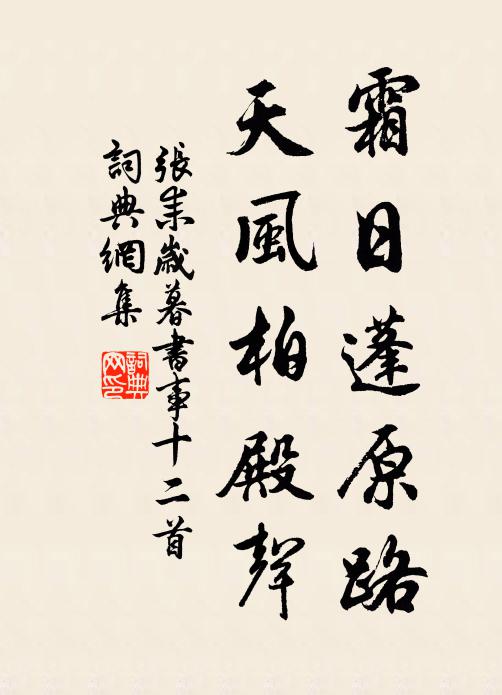 霜日蓬原路
天風柏殿聲
張耒歲暮書事十二首
詞典網集
詞典網印